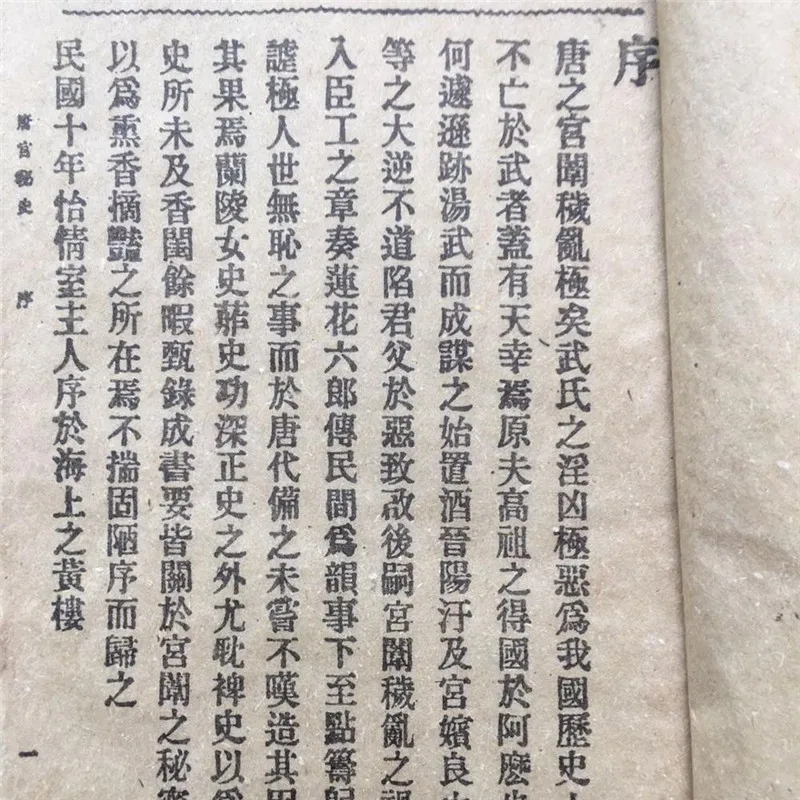 序
唐之宮闈穢亂極矣武氏之淫凶極惡爲我國歷史
不亡於武者蓋有天幸焉原夫高祖之得國於阿麽
何遽遜跡湯武而成謀之始置酒晉陽汙及宮嬪良
等之大逆不道陷君父於惡致啟後嗣宮闈穢亂之
入臣工之章奏蓮花六郎傳民間爲韻事下至點籌
謔極人世無恥之事而於唐代備之未嘗不嘆造其因
其果焉蘭陵女史蓱史功深正史之外尤耽裨史以爲
史所未及香閨餘暇甄錄成書要皆關於宮闈之秘
以爲熏香摘豔之所在焉不揣固陋序而歸之
民國十年怡情室主人序於海上之黃樓
唐宮秘史 序
一